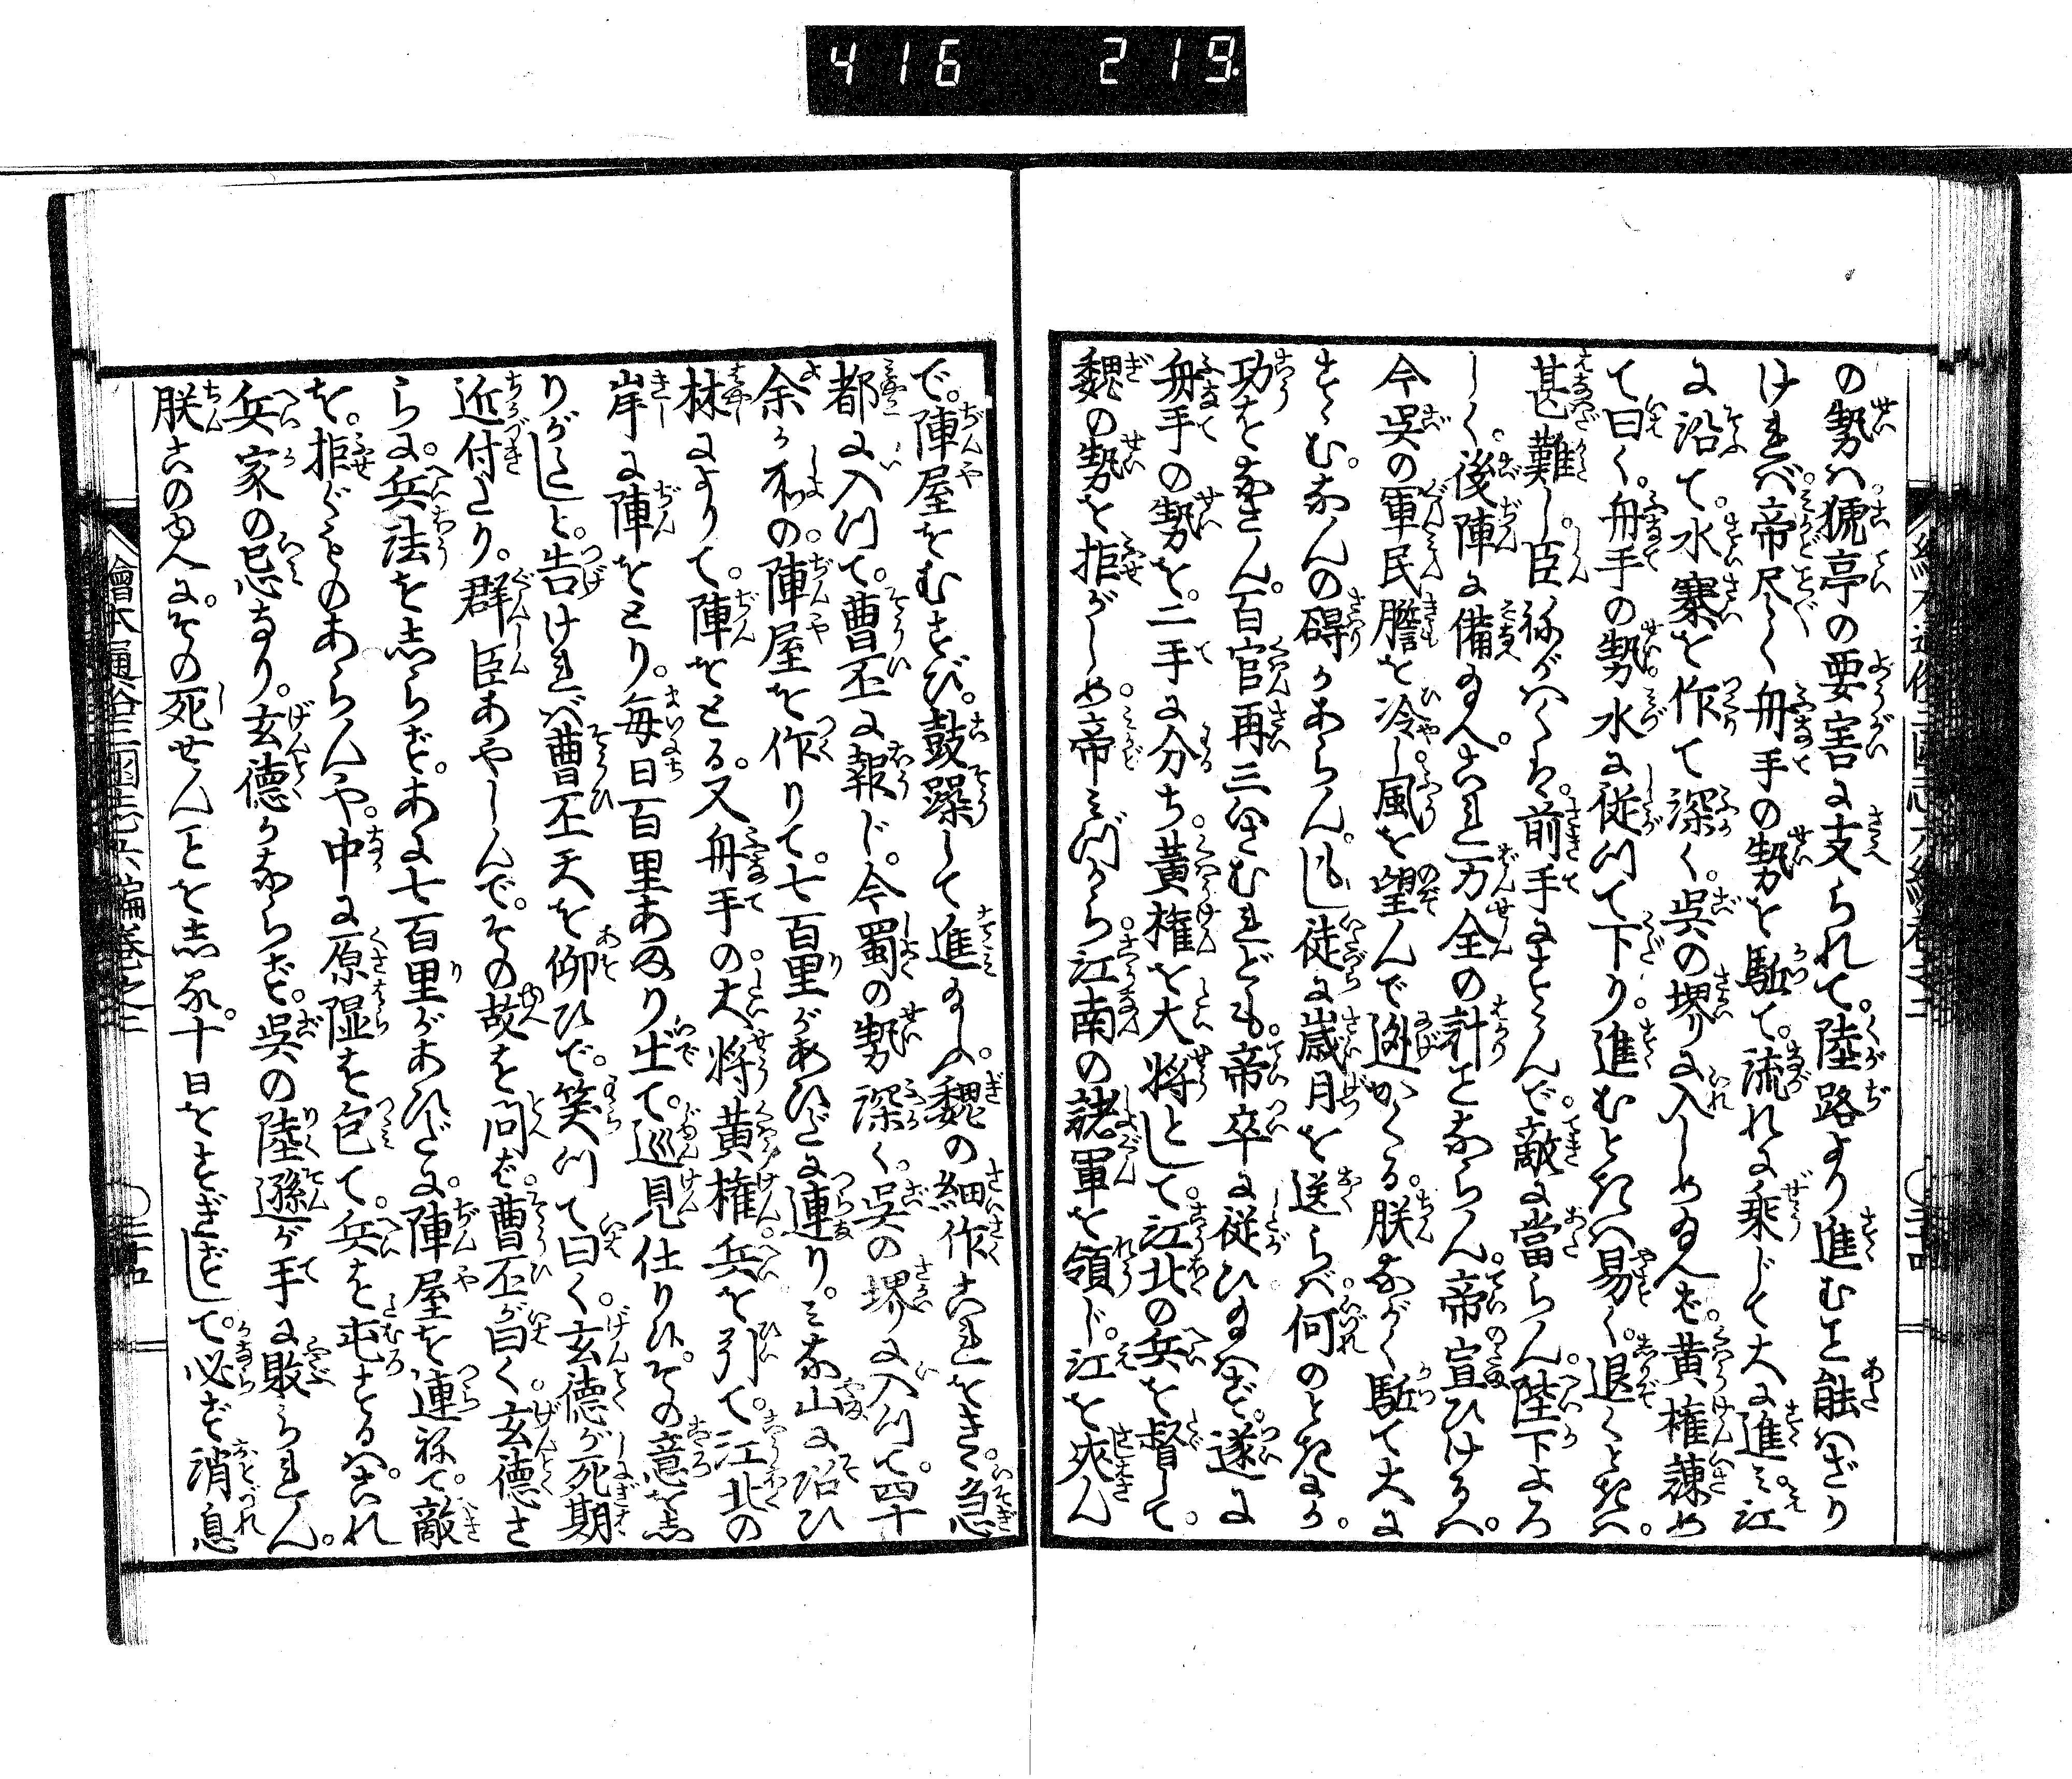 416 219
の勢ハ猇亭の要害に支られて。陸路より進むこと能ハざり
ければ帝尽く舟手の勢を駈て。流れに乗じて大に進ミ江
に沿て。水寨を作て深く。呉の堺に入しめ給へば。黄権諫め
て曰く。舟手の勢水に従つて下り。進むときハ易く。退くときハ。
甚難し。臣祢がハくハ。前手にすゝんで。敵に當らん。陛下よろ
しく。後陣に備給へ。これ万全の計とならん。帝宣ひけるハ。
今呉の軍民膽を冷し。風を望んで逃かくる。朕ながく駈て大に
すゝむ。なんの碍かあらん。もし徒に歳月を送らバ。何のときにか。
功をなさん。百官再三いさむれども。帝卒に従ひ給ハず。遂に
舟手の勢を。二手に分ち。黄権を大将として。江北の兵を督して。
魏の勢を拒がしめ。帝ミづから。江南の諸軍を領じ。江を夾ん
で。陣屋をむすび。鼓躁して進給ふ。魏の細作これをきゝ。急
都に入つて。曹丕に報じ。今蜀の勢深く。呉の堺に入つて。四十
余ケ所の。陣屋を作りて。七百里があひだに連り。ミな山に沿ひ
林によりて。陣をとる。又舟手の大将黄権。兵を引て。江北の
岸に陣をとり。毎日百里あまり出て。巡見仕り候。その意をし
りがたしと。告ければ曹丕天を仰ひで。笑つて曰く。玄徳が死期
近付たり。群臣あやしんで。その故を問ば。曹丕が曰く。玄徳さ
らに。兵法をしらず。あに七百里があひだに。陣屋を連ねて。敵
を。拒ぐものあらんや。中に原湿を包て。兵を屯するハ。これ
兵家の忌なり。玄徳かならず。呉の陸遜が手に敗られん。
朕このゆへに。その死せんことをしる。十日をすぎずして。必ず消息
繪本通俗三國志六編巻之二